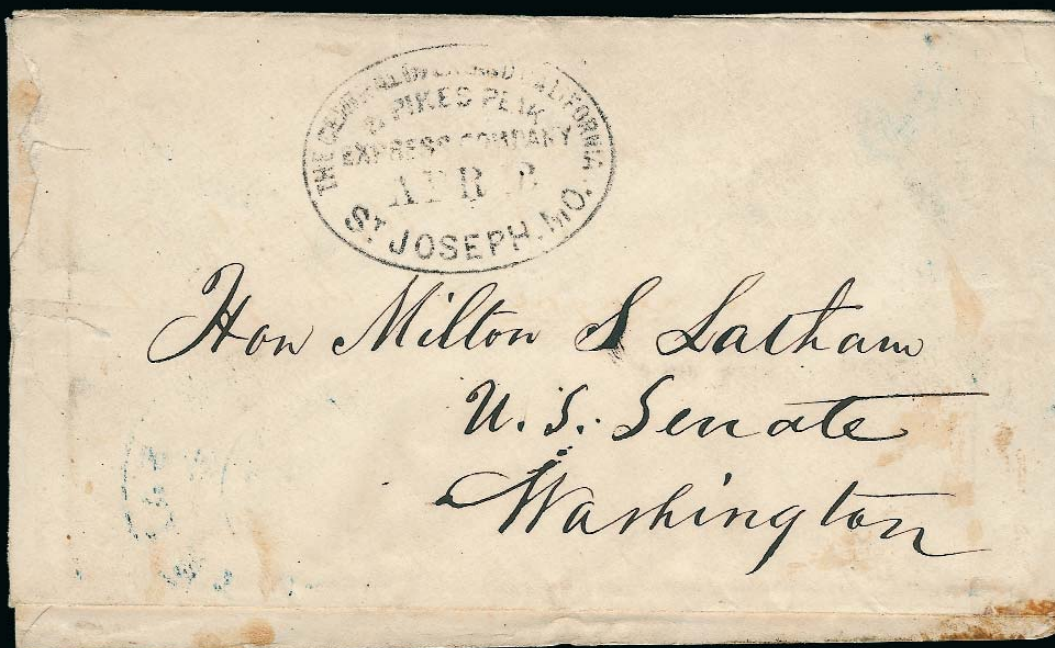 THE CENTRAL OVERLAND CALIFORNIA
& PIKES PEAK
EXPRESS COMPANY
APR
ST JOSEPH, MO.
Hon Milton S Latham
U.S. Senate
Washington